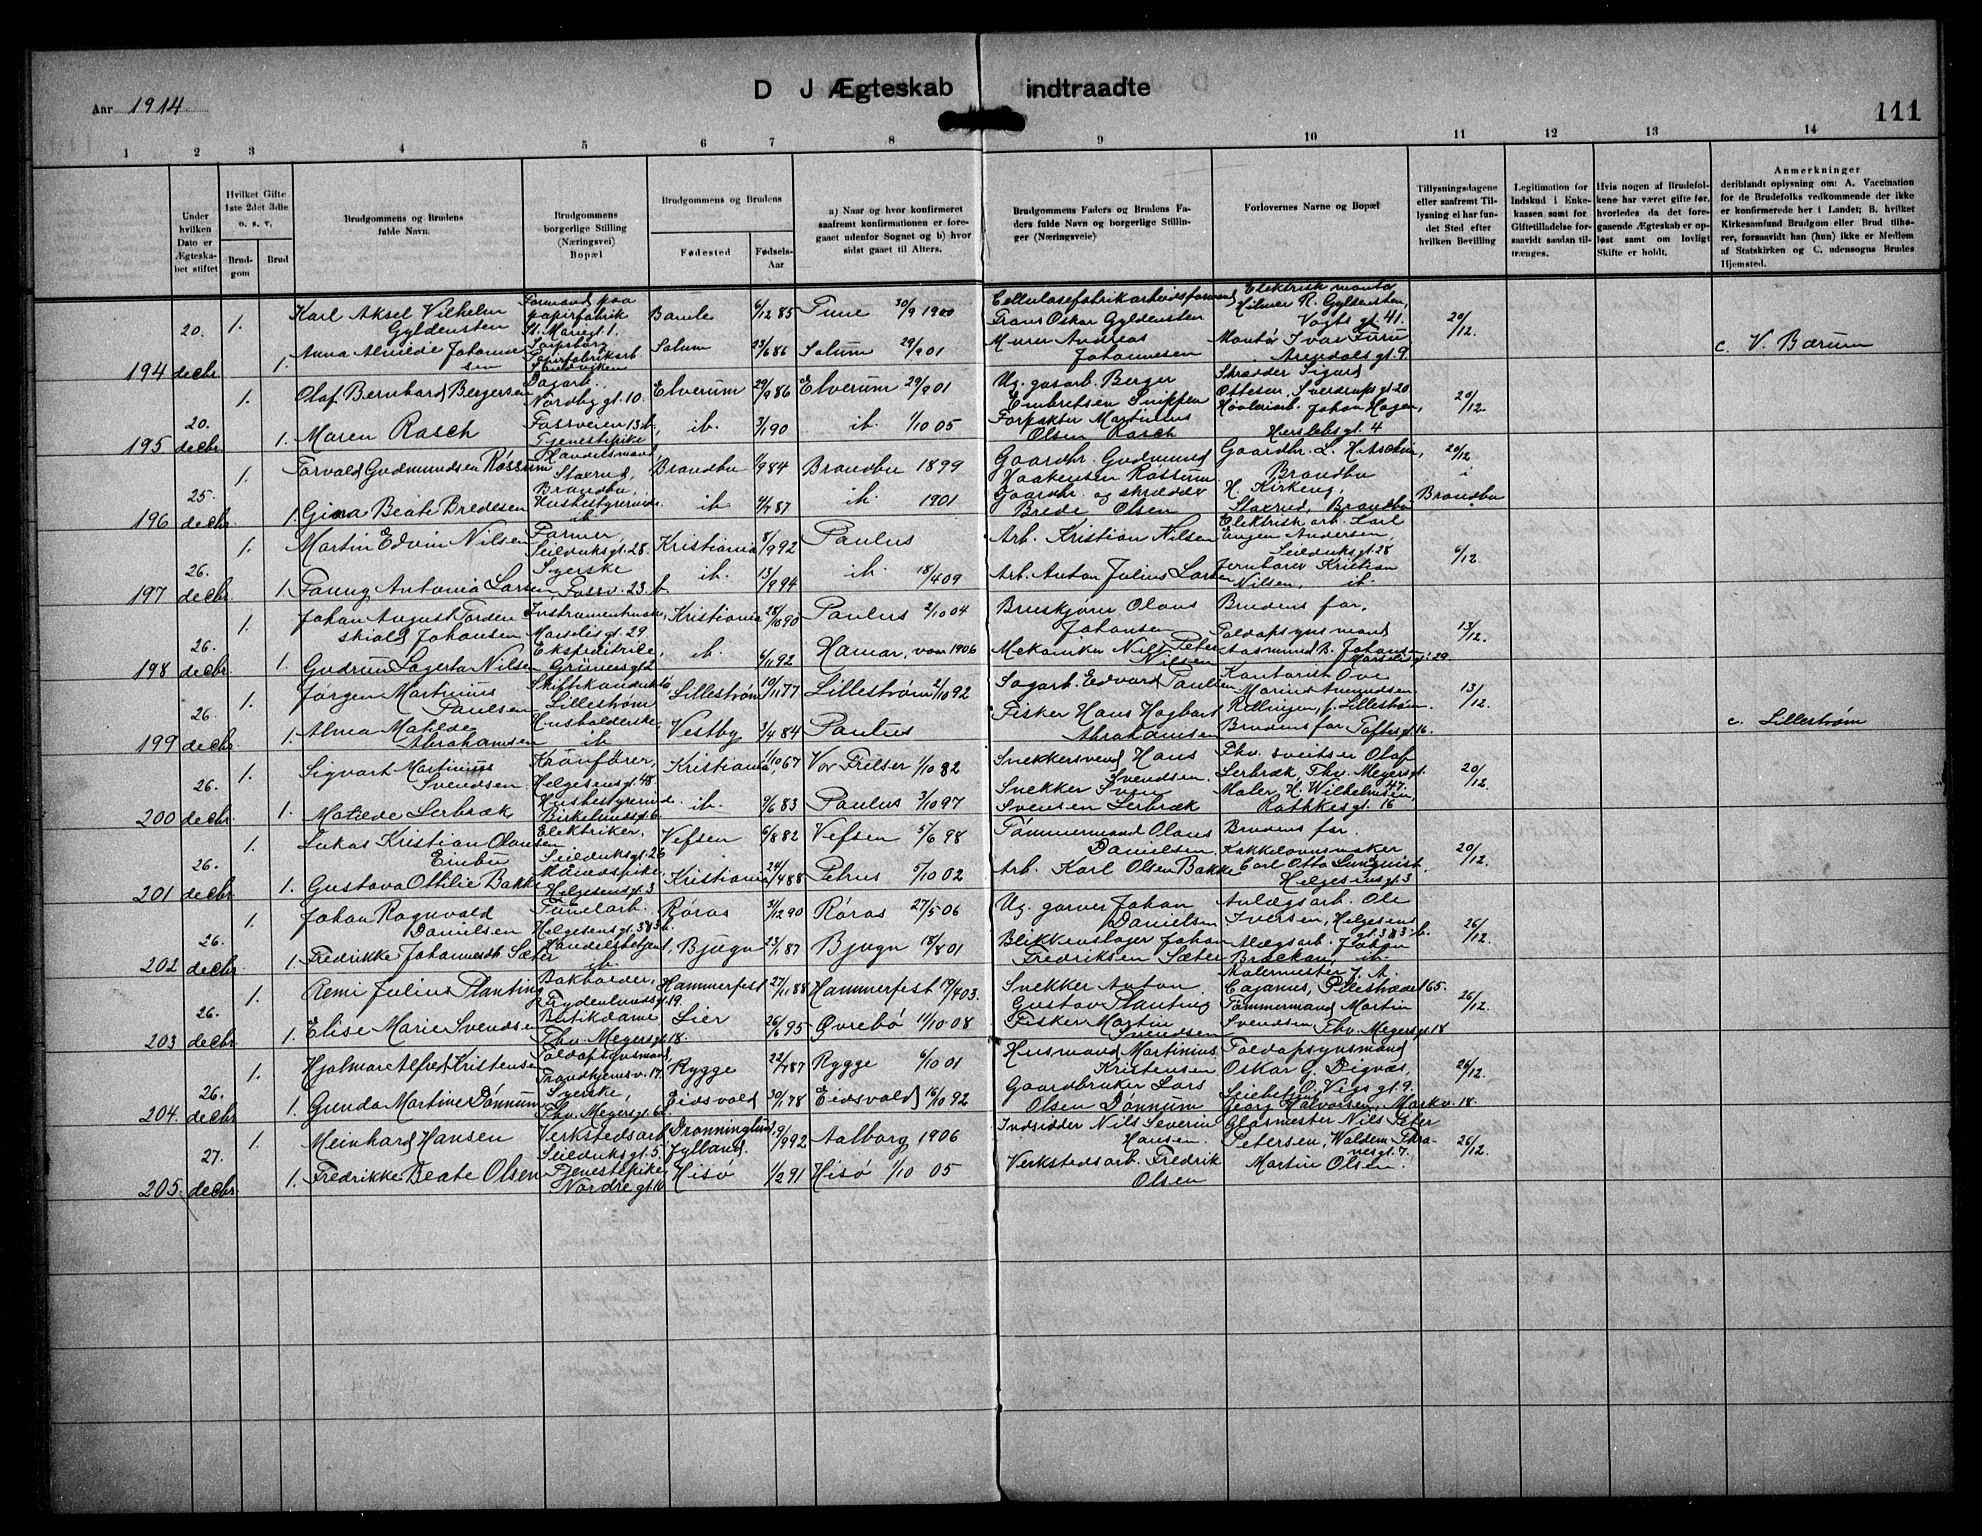 Aar 1914
D J Ægteskab indtraadte
111
1 2 3 4 5 6 7 8 9 10 11 12 13 14
Under hvilken Dato er Ægteskabet stiftet
Hvilket Gifte 1ste 2det 3die o. s. v,
Brudgom
Brud
Brudgommens og Brudens fulde Navn.
Brudgommens borgerlige Stilling (Næringsvei) Bopæl
Brudgommens og Brudens
Fødested
Fødsels-Aar
a) Naar og hvor konfirmeret saafremt konfirmationen er foregaaet udenfor Sognet og b) hvor sidst gaaet til Alters.
Brudgommens Faders og Brudens Faders fulde Navn og borgerlige Stillinger (Næringsveie)
Forlovernes Navne og Bopæl
Tillysningsdagene eller saafremt Tillysning ei har fundet Sted efter hvilken Bevilling
Legitimation for Indskud i Enkekassen samt for Giftetilladelse forsaavidt saadan tiltrænges.
Hvis nogen af Brudefolkene har været gifte før, hvorledes da det foregaaende Ægteskab er opløst samt om lovligt Skifte er holdt.
Anmerkninger
deriblandt oplysning om: A. Vaccination for de Brudefolks vedkommende der ikke er konfirmerede her i Landet; B. hvilket Kirkesamfund Brudgom eller Brud tilhører, forsaavidt han (hun) ikke er Medlem af Statskirken og C. udensogns Brudes Hjemsted.
194 20. decbr. 1. Karl Aksel Vilhelm Gyldensten Formand paa papirfabrik St. Mariegt. 1. Sarpsborg Bamle 6/12 85 Tune 30/9 1900 Cellulosefabrikarbeidsformand Frans Oskar Gyldensten Elektrisk montør Hilmer R. Gyldensten, Vogts gt. 41. 20/12.
1. Anna Almide Johannesen Papirfabrikarb. Sandviken Solum 23/6 86 Solum 29/9 01 Murer Andreas Johannesen Montør Ivar Furu Arendals gt. 9. c. V. Bærum
195 20. decbr. 1. Olaf Bernhard Bergersen Dagarb. Nordbygt. 10. Elverum 29/9 86 Elverum 29/9 01 Ug. gasarb. Berger Embretsen Snippen Skrædder Sigurd Ottesen, Sverdrups gt. 20 20/12.
1. Maren Rasch Fossveien 13 b, Tjenestepike ib. 3/1 90 ib. 1/10 05 Forpakter Martinus Olsen Rasch Høvleriarb. Johan Hagen, Herslebs gt. 4
196 25. decbr. 1. Torvald Gudmundsen Røssum Handelsmand, Staxrud, Brandbu, Brandbu 1/9 84 Brandbu 1899 Gaardbr. Gudmund Haakensen Røssum Gaardbr. L. Brandbu 20/12 i Brandbu
1. Gina Beate Bredesen Husbestyrerinde ib ib. 4/7 87 ib. 1901 Gaardbr. og skrædder Brede Olsen H. Kirkeng, Staxrud, Brandbu
197 26. decbr. 1. Martin Edvin Nilsen Farmer, Seilduksgt. 28. Kristiania 8/9 92 Paulus Arb. Kristian Nilsen Elektrisk arb. Karl Eugen Andersen, Seilduksgt. 28 6/12.
1. Fanny Antonia Larsen Syerske Fossv. 23. b. ib. 13/9 94 ib. 18/4 09 Arb. Anton Julius Larsen Jernbanev Kristian Nilsen, ib.
198 26. decbr. 1. Johan August Tordenskiold Johansen Instrumentmak. Marselisgt. 29. Kristiania 28/10 90 Paulus 2/10 04 Bruskjører Olaus Johansen Brudens far. 13/12.
1. Gudrun Lagerta Nilsen Ekspeditrice, Grünersgt. 2 ib. 6/11 92 Hamar, vaar 1906 Mekaniker Nils Peter Nilsen Toldopsynsmand Aasmund B. Johansen Marselisgt. 29.
199 26. decbr. 1. Jørgen Martinius Paulsen Skiftekonduktør Lillestrøm Lillestrøm 10/11 77 Lillestrøm 2/10 92 Sagarb. Edvard Paulsen Kontorist Ove Marius Amundsen Rellingen, p. Lillestrøm. 13/12.
1. Alma Matilde Abrahamsen Husholderske, ib Vestby 3/4 84 Paulus Fisker Hans Hagbart Abrahamsen Brudens far Toftesgt. 16. c. Lillestrøm
200 26. decbr. 1. Sigvart Martinius Svendsen Kranfører, Helgesensgt. 48. Kristiania 1/10 67 Vor Frelser 1/10 82 Snekkersvend Hans Svendsen Fhv. sveitser Olaf Lerbræk, Thv. Meyersgt. 47. 20/12.
1. Matilde Lerbræk Husbestyrerinde. Birkelundsgt. 6. ib. 9/6 83 Paulus 3/10 97 Snekker Sven Svensen Lerbræk Maler, H. Wilhelmsen, Rathkesgt. 16
201 26. decbr. 1. Lukas Kristian Olausen Einbu Elektriker, Seilduksgt. 26 Vefsen 6/8 82 Vefsen 5/6 98 Tømmermand Olaus Danielsen. Brudens far. 20/12.
1. Gustava Ottilie Bakke Helgesensgt. 3 Kristiania 24/4 88 Petrus 5/10 02 Arb. Karl Olsen Bakke Kakkelovnsmaker Carl Otto Lundqvist, Helgesensgt. 3
202 26. decbr. 1. Johan Ragnvald Danielsen Tunelarb. Helgesensgt. 33 b. Røros 3/12 90 Røros 27/5 06 Ug. garver Johan Danielsen Anlægsarb. Ole Iversen, Helgesens gt. 33. b. 26/12.
1. Fredrikke Johannesdt. Sæter Handelsbetjent, ib. Bjugn 23/1 87 Bjugn 18/8 01 Blikkenslager Johan Fredriksen Sæter Alægsarb. Johan Brækan, ib.
203 26. decbr. 1. Remi Julius Planting Bokholder, Frydenlundsgt. 19. Hammerfest 27/11 88 Hammerfest 19/4 03. Snekker Anton Gustav Planting Malermester J. A. Cajanus, Pilestrædet 65. 26/12.
1. Elise Marie Svendsen Butikdame Thv. Meyersgt. 18. Lier 26/6 95 Øvrebø 11/10 08 Fisker Martin Svendsen Tømmermand Martin Svendsen, Thv. Meyersgt. 18
204. 26. decbr. 1. Hjalmar Alfred Kristensen Toldopsynsmand, Trondhjemsv. 17. Rygge 22/7 87 Rygge 6/10 01 Husmand Martinius Kristensen Toldopsynsmand Oskar G. Digvæs, O. Vigs gt. 9. 26/12.
1. Gunda Martine Dønnum Syerske, Thv. Meyersgt. 62. Eidsvold 30/1 78 Eidsvold 16/10 92 Gaardbruker Lars Olsen Dønnum Georg Halvorsen, Markv. 18.
205. 27. decbr. 1. Meinhard Hansen Verkstedsarb. Seilduksgt. 5. Dronninglund, Jylland. 19/9 92 Aalborg 1906 Indsidder Nils Severin Hansen. Glasmester Nils Peter Petersen, Waldem. Thranesgt. 7. 26/12.
1. Fredrikke Beate Olsen Tjenestepike, Nordregt. 16 Hisø 1/2 91 Hisø 1/10 05 Verkstedsarb. Fredrik Olsen Martin Olsen.